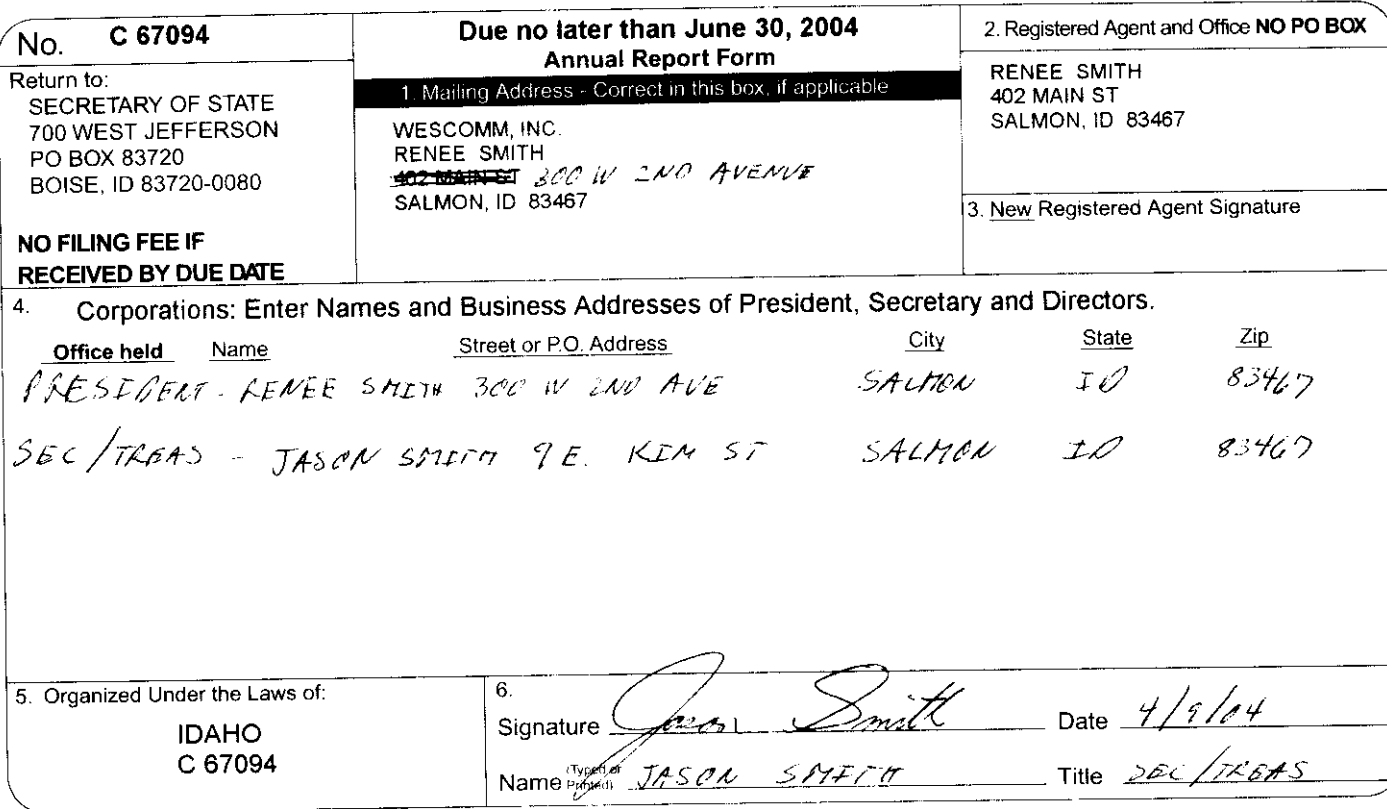 No. C 67094
Return to:
SECRETARY OF STATE
700 WEST JEFFERSON
PO BOX 83720
BOISE, ID 83720-0080
NO FILING FEE IF
RECEIVED BY DUE DATE
Due no later than June 30, 2004
Annual Report Form
1. Mailing Address - Correct in this box, if applicable
WESCOMM, INC.
RENEE SMITH
402 MAIN ST 300 W 2ND AVENUE
SALMON, ID 83467
2. Registered Agent and Office NO PO BOX
RENEE SMITH
402 MAIN ST
SALMON, ID 83467
3. New Registered Agent Signature
4. Corporations: Enter Names and Business Addresses of President, Secretary and Directors.
Office held Name Street or P.O. Address City State Zip
PRESIDENT - RENEE SMITH 300 W 2ND AVE SALMON ID 83467
SEC/TREAS - JASON SMITH 9 E. KIM ST SALMON ID 83467
5. Organized Under the Laws of:
IDAHO
C 67094
6.
Signature Jason Smith Date 4/9/04
Name (Typed or Printed) JASON SMITH Title SEC/TREAS